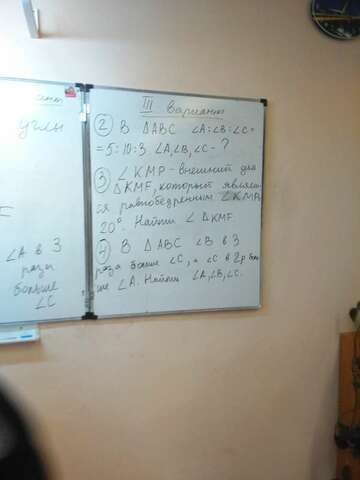 углы
∠A в 3
раза
больше
∠C
III вариант
② В ΔABC ∠A:∠B:∠C=
=5:10:3 ∠A,∠B,∠C-?
③ ∠KMP-внешний для
ΔKMF, который являет-
ся равнобедренным ∠KMP
20°. Найти ∠ ΔKMF.
В ΔABC ∠B в 3
раза больше ∠C, а ∠C в 2р боль
ше ∠A. Найти ∠A,∠B,∠C.